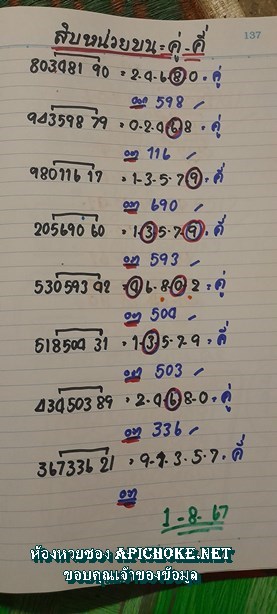 สิบหน่วยบน = คู่ - คี่
137
803481 90 = 2-4-6 8 0 = คู่
ออก 598 ✓
943598 79 = 0-2-4 6 8 = คู่
ออก 116 ✓
980116 17 = 1-3-5-7 9 = คี่
ออก 690 ✓
205690 60 = 1-3-5-7-9 = คี่
ออก 593 ✓
530593 42 = 4 6-8-0-2 = คู่
ออก 504 ✓
518504 31 = 1-3-5-7-9 = คี่
ออก 503 ✓
434503 89 = 2-4 6 8-0 = คู่
ออก 336 ✓
367336 21 = 9-1-3-5-7 = คี่
ออก
1-8-67
ห้องหวยซอง APICHOKE.NET
ขอบคุณเจ้าของข้อมูล